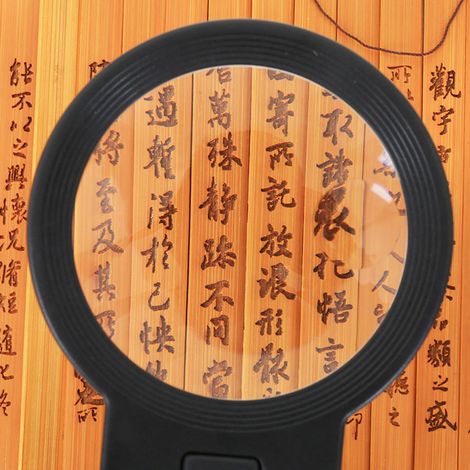 觀宇
品類之盛
所
人人
之
取諸懷抱悟言
因寄所託放浪形骸
萬殊靜躁不同當
遇暫得於己怏然
將至及其所
能不以之興懷況脩短隨化終